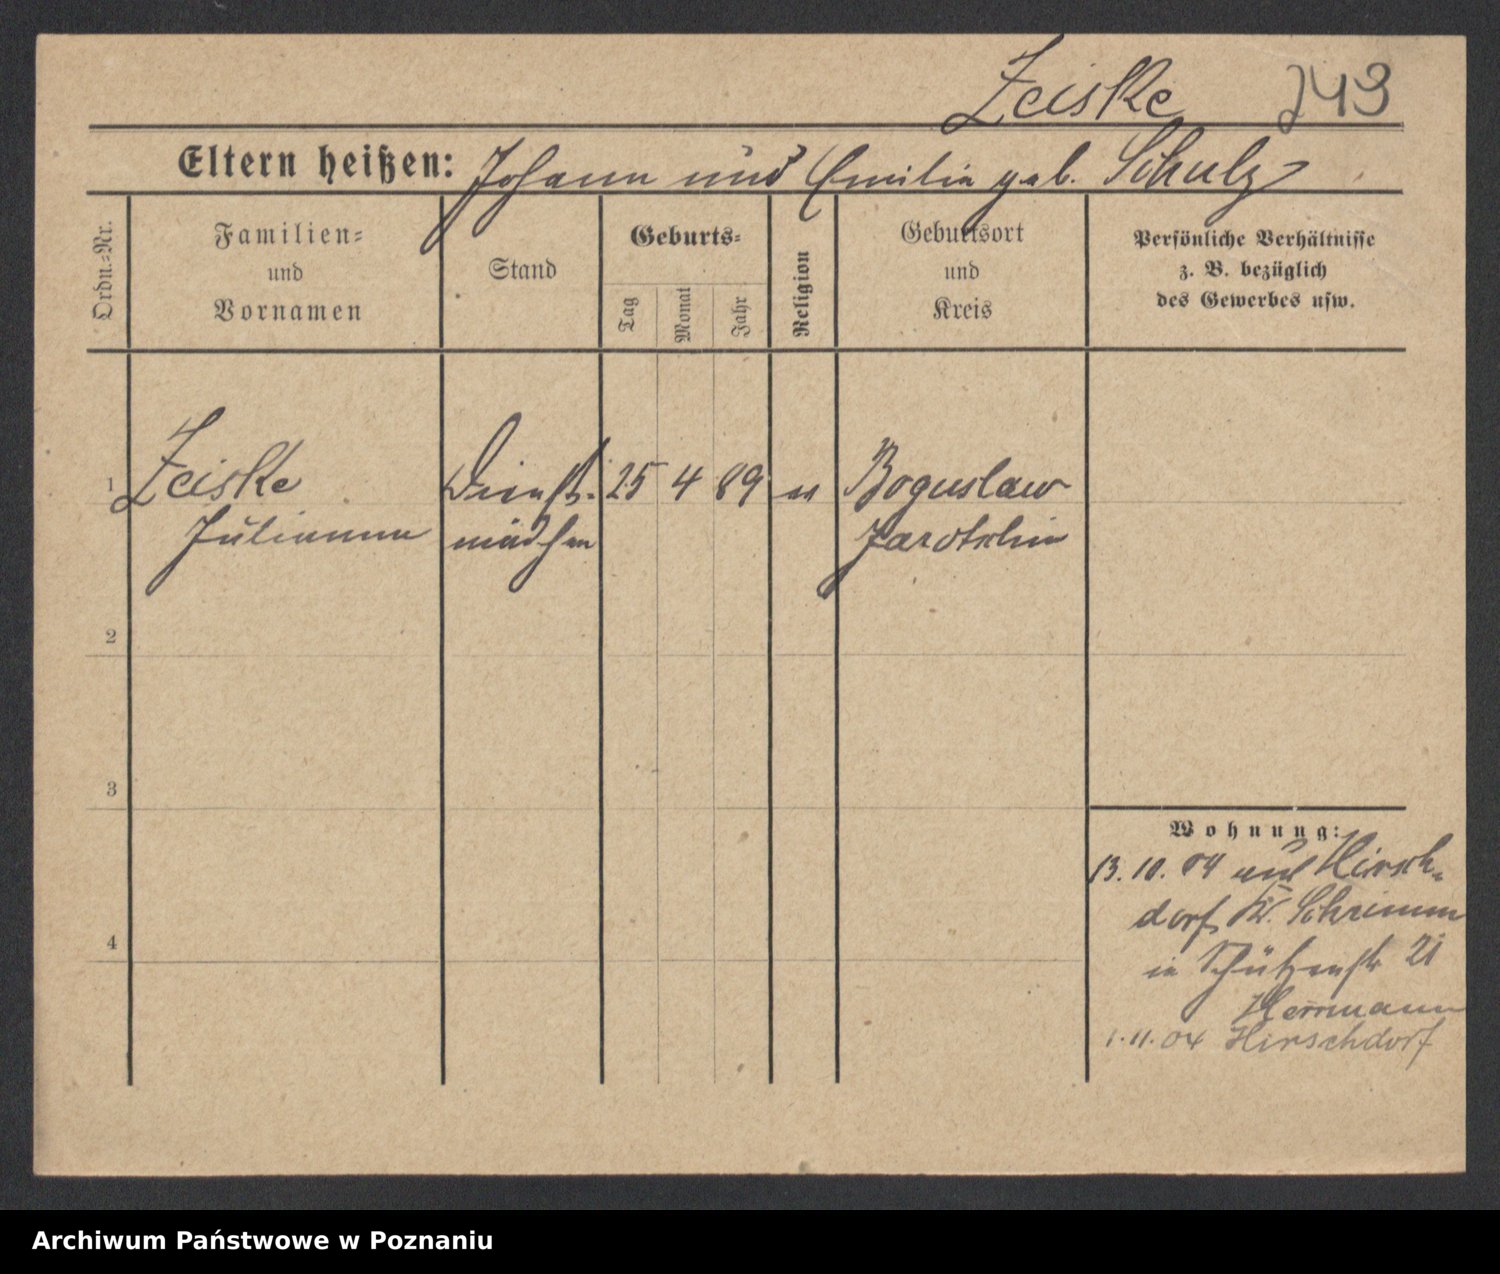 Zeiske 243
Eltern heißen: Johann und Emilia geb. Schulz
Ordn.-Nr.
Familien-
und
Vornamen
Stand
Geburts-
Tag
Monat
Jahr
Religion
Geburtsort
und
Kreis
Persönliche Verhältnisse
z. B. bezüglich
des Gewerbes usw.
1 Zeiske Dienst- 25 4 89 Boguslaw
Julianna mädchen Jarotschin
2
3
4
Wohnung:
13. 10. 04 aus Hirsch-
dorf, Kr. Schrimm
in Schützenstr 21
Herrmann
1.11.04 Hirschdorf
Archiwum Państwowe w Poznaniu